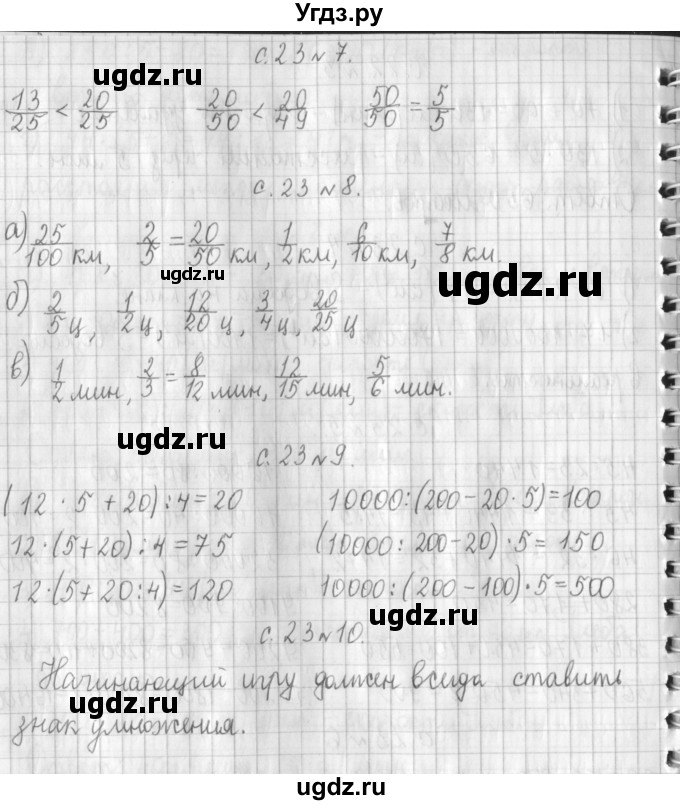 Угдз.ру
с.23 №7.
ugdz.ru ugdz.ru
13/25 < 20/25 20/50 < 20/49 50/50 = 5/5
с.23 №8.
ugdz.ru
а) 25/100 км, 2/5 = 20/50 км, 1/2 км, 6/10 км, 7/8 км.
ugdz.ru
б) 2/5 ц, 1/2 ц, 12/20 ц, 3/4 ц, 20/25 ц
в) 1/2 мин, 2/3 = 8/12 мин, 12/15 мин, 5/6 мин.
ugdz.ru ugdz.ru
с.23 №9.
(12 · 5 + 20) : 4 = 20 10000 : (200 - 20 · 5) = 100
12 · (5 + 20) : 4 = 75 (10000 : 200 - 20) · 5 = 150
12 · (5 + 20 : 4) = 120 10000 : (200 - 100) · 5 = 500
ugdz.ru
с.23 №10.
Начинающий игру должен всегда ставить
ugdz.ru
знак умножения.
ugdz.ru
ugdz.ru